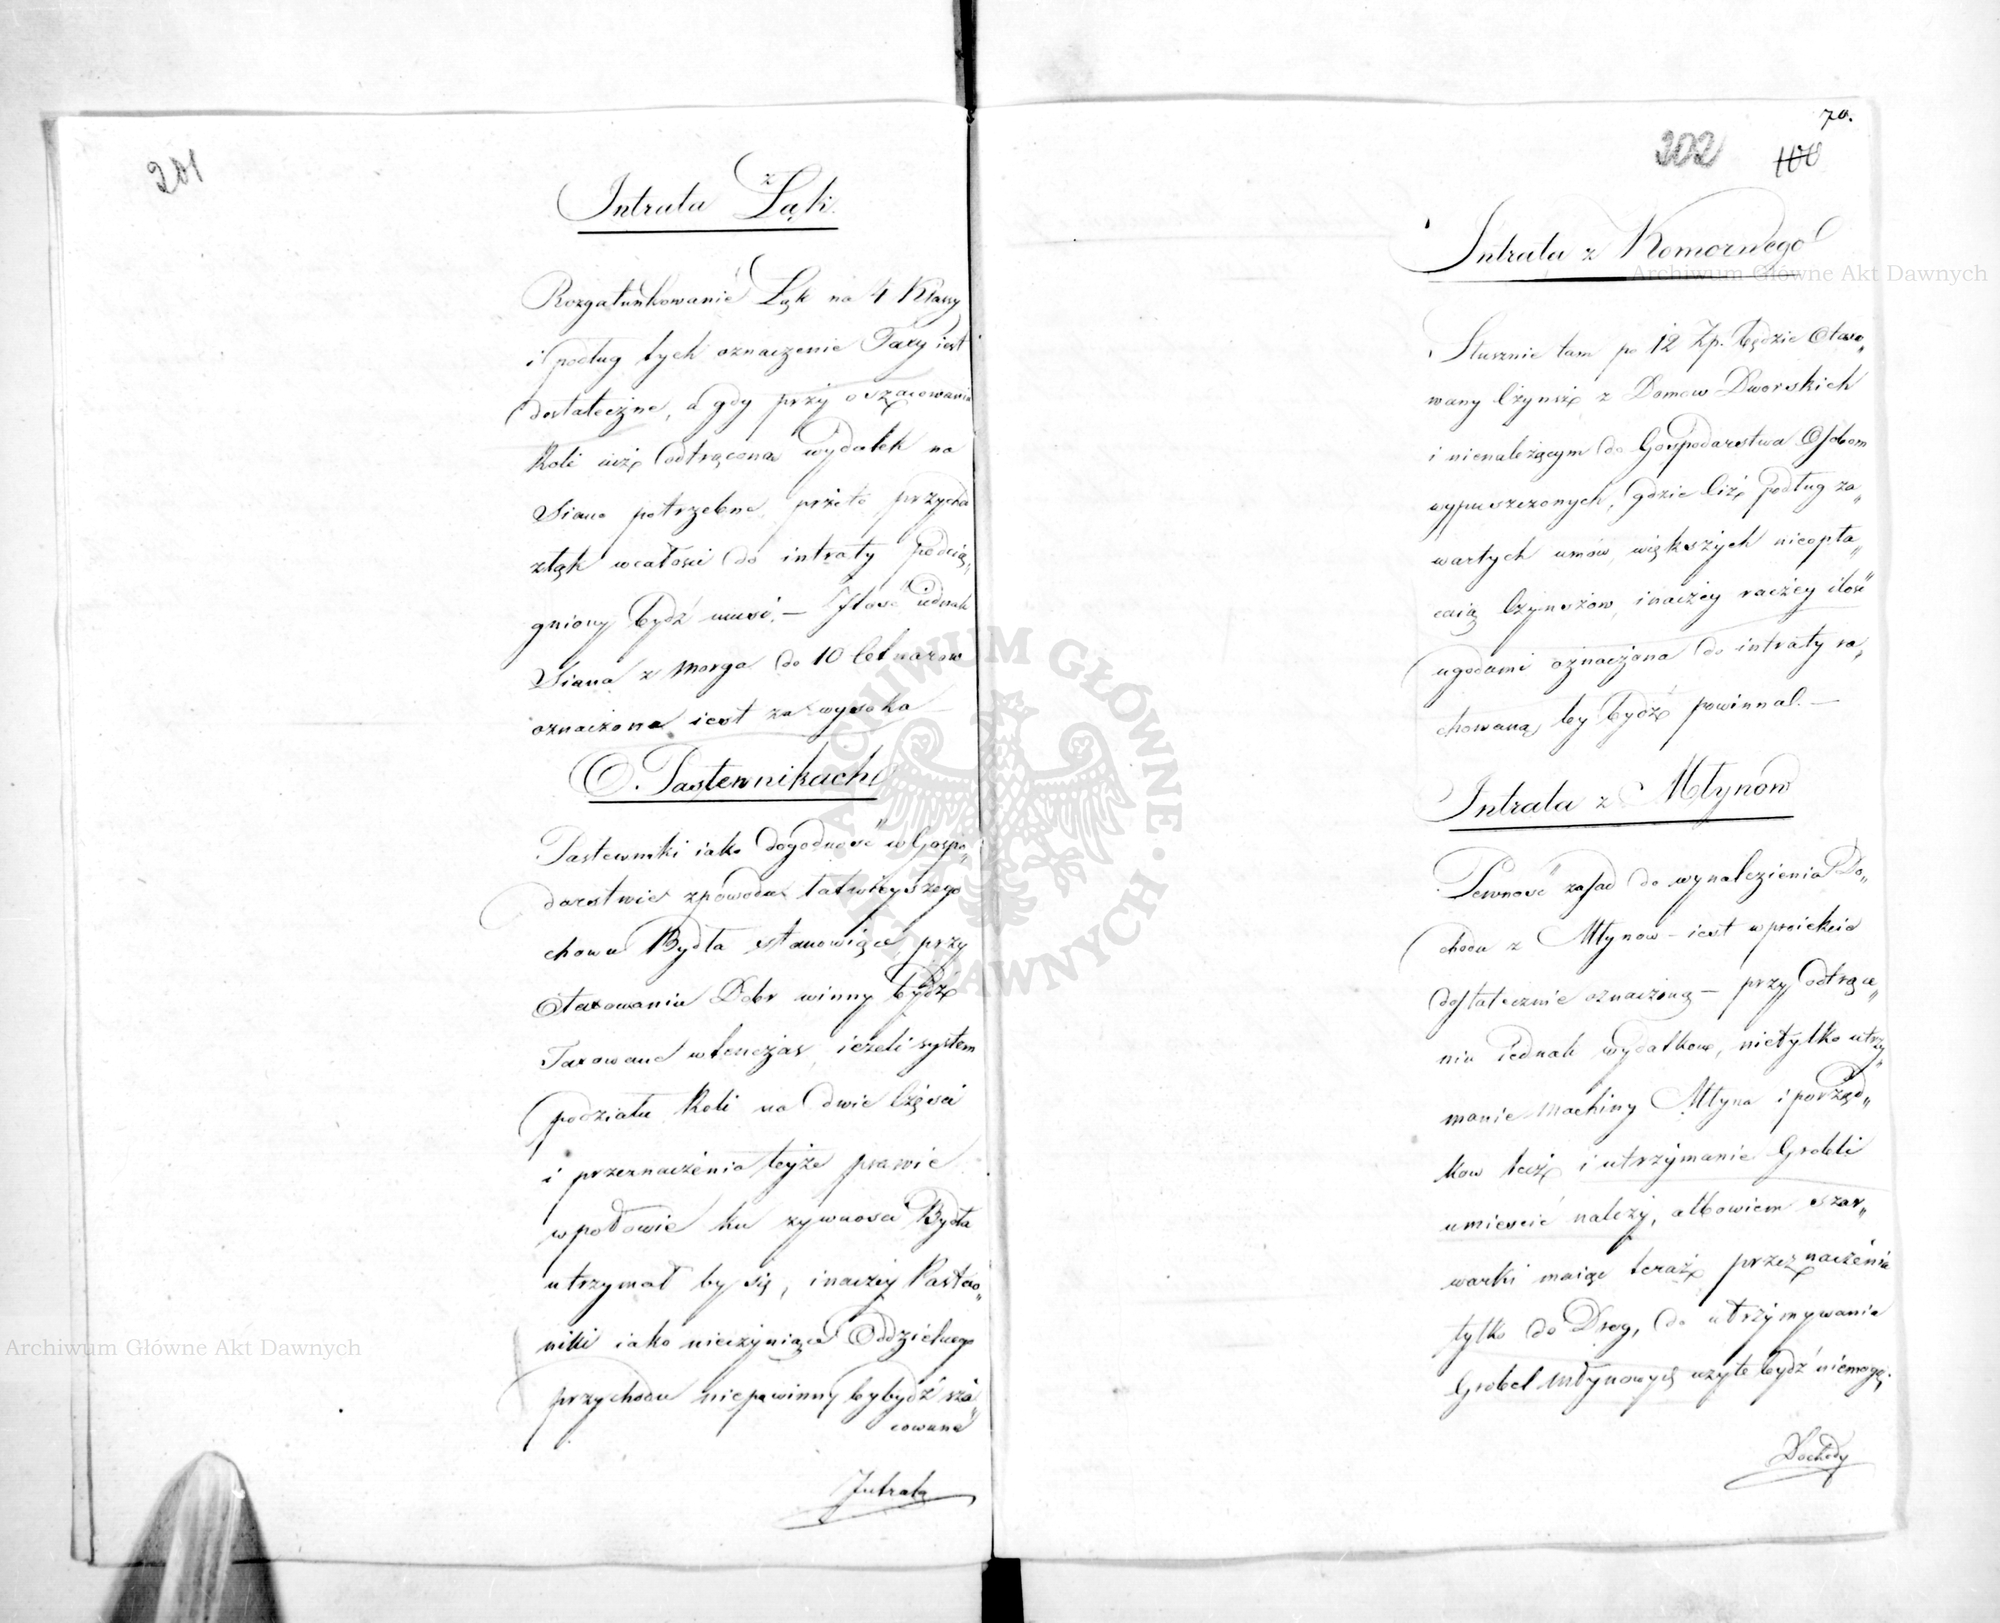 201
Intrata z Łąk.
Rozgatunkowanie Łąk na 4 Klassy
i podług tych oznaczenie Taxy iest
dostateczne, a gdy przy oszacowaniu
Roli iuż odtrącona wydatek na
Siano potrzebne, przeto przychod
złąk wcałości do intraty podcią„
gniony bydź musi. — Ilość iednak
Siana z Morga do 10 Cetnarow
oznaczona iest za wysoka
O. Pastewnikach
Pastewniki iako dogodność w Gospo„
darstwie zpowodu łatwieyszego
chowu Bydła stanowiące, przy
Otaxowaniu Dobr winny bydź
Taxowane wtenczas, ieżeli system
podziału Roli na dwie Części
i przeznaczenia teyże prawie
wpołowie ku żywności Bydła
utrzymał by się, inaczey Pastew„
niki iako nieczyniące Oddzielnego
przychodu niepowinny bybydź sza„
cowane
Intrata
70.
202
100
Intrata z Komornego
Słusznie tam po 12 Zp. będzie Otaxo„
wany Czynsz z Domow Dworskich
i nienależącym do Gospodarstwa Osobom
wypuszczonych, gdzie Ciż podług za„
wartych umów, większych nieopła„
caią Czynszow, inaczey raczey ilość
ugodami oznaczona do intraty ra„
chowaną by bydź powinna. —
Intrata z Młynow
Pewność zasad do wynalezienia Do„
chodu z Młynow – iest wproiekcie
dostatecznie oznaczoną — przy odtrące„
niu iednak wydatkow, nietylko utrzy„
manie Machiny Młyna i porząd„
kow też i utrzymanie Grobli
umieścić należy, albowiem szar„
warki maiąc teraz przeznaczenia
tylko do Drog, do utrzymywania
Grobel Młynowych użyte bydź niemogą.
Dochody
Archiwum Główne Akt Dawnych
Archiwum Główne Akt Dawnych
ARCHIWUM GŁÓWNE AKT DAWNYCH